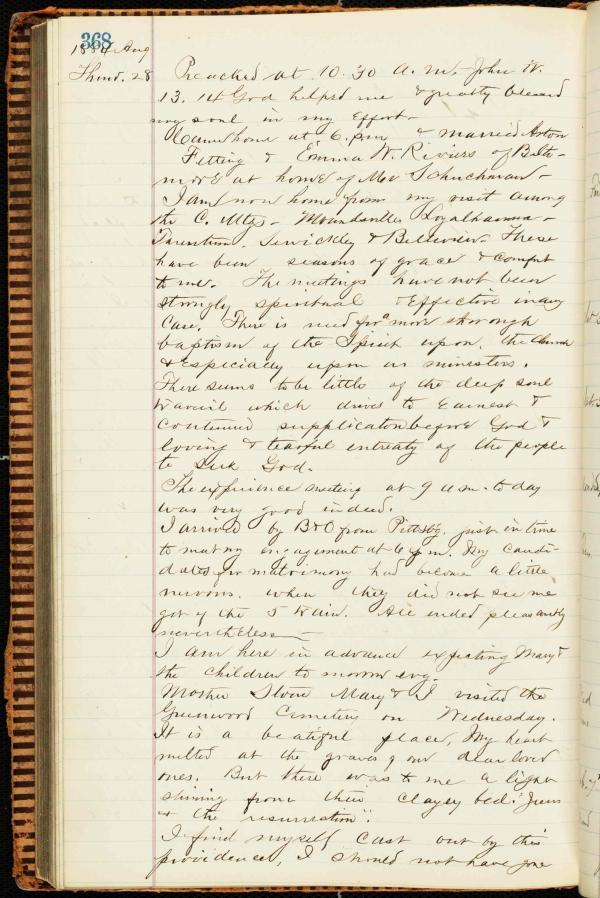 368
1884 Aug
Thurs. 28 Preached at 10.30 a.m. John W.
13.14 God helped me & greatly blessed
my soul in my effort-
Came home at 6. pm & married
Fitting & Emma W. Riviers of Balti-
more at home of Mev Schuchman-
I am now home from my visit among
the C. Mtgs- Moundsville Loyalhanna-
Tarentum. Sewickley & Bellevieu- These
have been seasons of grace & comfort
to me. The meetings have not been
strongly spiritual & effective in any
case. There is need for a more thorough
baptism of the Spirit upon, the Church
& especially upon us ministers.
There seems to be little of the deep soul
travail which drives to earnest &
continued supplication before God &
loving & tearful entreaty of the people
to seek God.
The experience meeting at 9 a.m. to day
was very good indeed.
I arrived by B&O from Pittsbg. just in time
to meet my engagement at 6 p.m. My candi-
dates for matrimony had become a little
nervous. when they did not see me
get of the train. All ended pleasantly
nevertheless-
I am here in advance expecting Mary &
the children to morrow evg.
Mother Mary & I visited the
Greenwood Cemetery on Wednesday.
It is a beatiful place, My heart
melted at the graves of our dear loved
ones. But there was to me a light
shining from their clayey bed. "Jesus
& the resurrection".
I find myself cast out by this
providences, I should not have gone